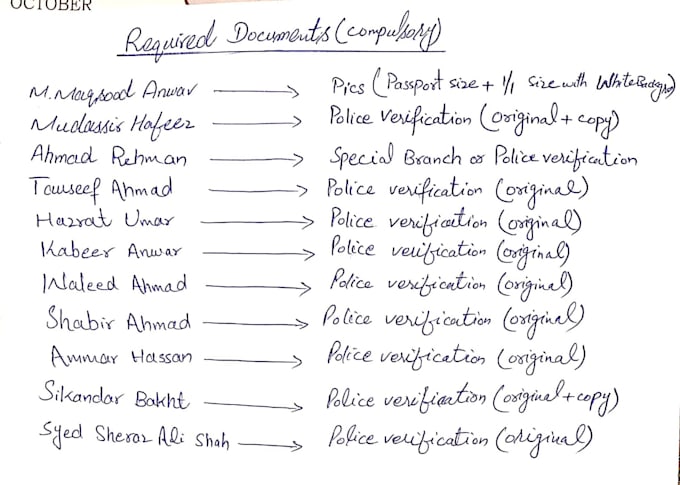 OCTOBER
Required Documents (compulsory)
M. Maqsood Anwar → Pics (Passport size + 1/1 size with White Backgro)
Mudassir Hafeez → Police verification (original + copy)
Ahmad Rehman → Special Branch or Police verification
Tawseef Ahmad → Police verification (original)
Hazrat Umar → Police verification (original)
Kabeer Anwar → Police verification (original)
Waleed Ahmad → Police verification (original)
Shabir Ahmad → Police verification (original)
Ammar Hassan → Police verification (original)
Sikandar Bakht → Police verification (original + copy)
Syed Sheraz Ali Shah → Police verification (original)